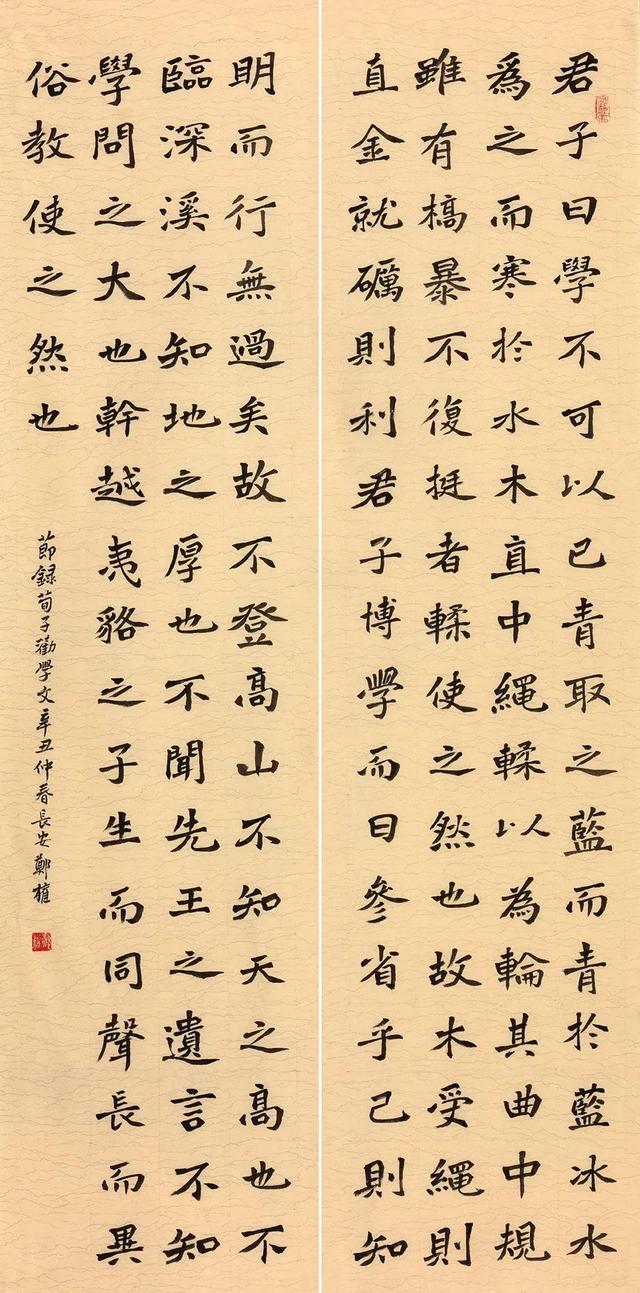 君子曰學不可以已青取之藍而青於藍冰水
爲之而寒於水木直中繩輮以為輪其曲中規
雖有槁暴不復挺者輮使之然也故木受繩則
直金就礪則利君子博學而日參省乎己則知
明而行無過矣故不登高山不知天之高也不
臨深溪不知地之厚也不聞先王之遺言不知
學問之大也幹越夷貉之子生而同聲長而異
俗教使之然也
節録荀子勸學文辛丑仲春長安鄭